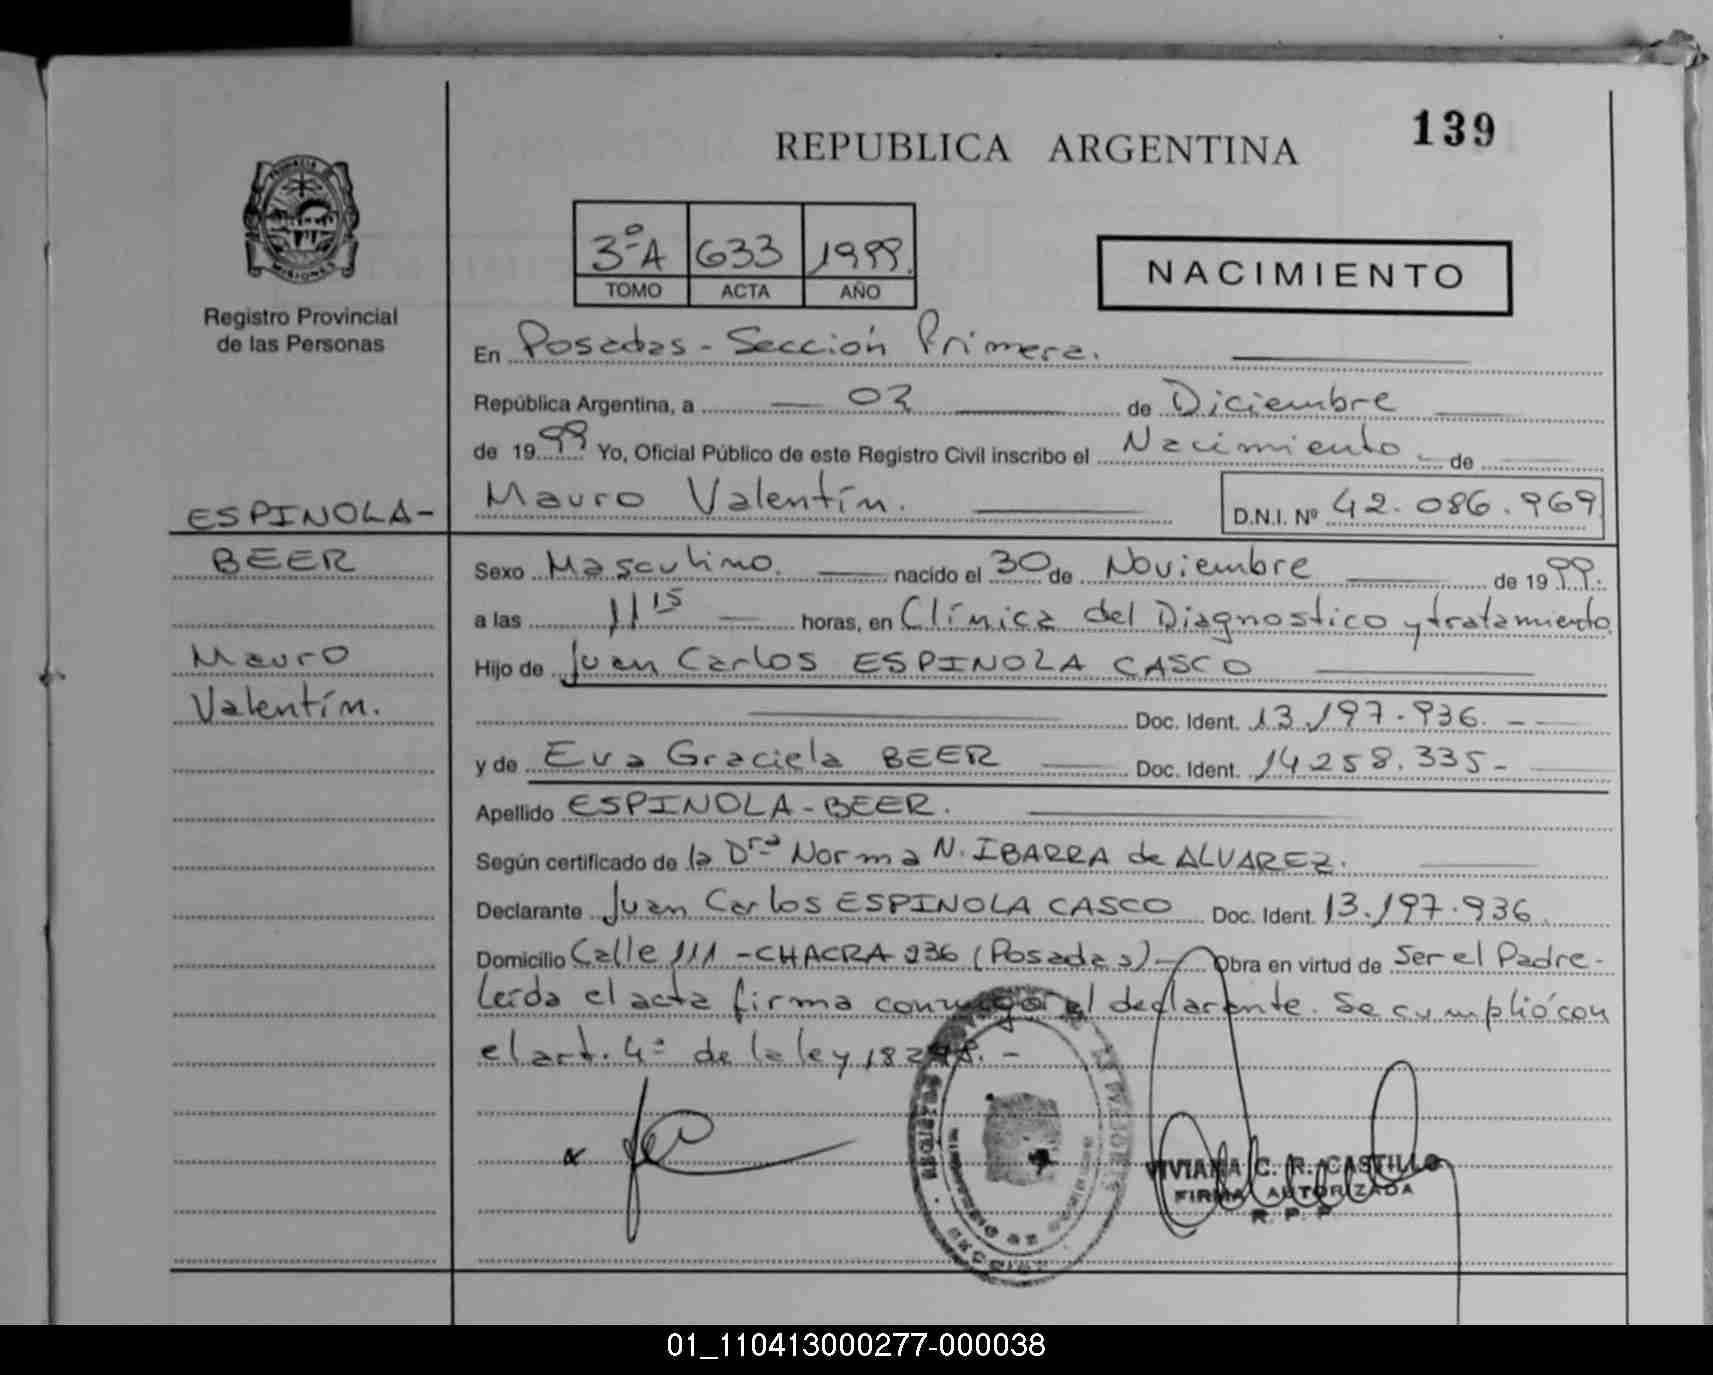 139
REPUBLICA ARGENTINA
PROVINCIA DE
MISIONES
Registro Provincial
de las Personas
3ºA 633 1999.
TOMO ACTA AÑO
NACIMIENTO
En Posadas - Sección Primera.
República Argentina, a 02 de Diciembre
de 1999 Yo, Oficial Público de este Registro Civil inscribo el Nacimiento de
Mauro Valentín. D.N.I. Nº 42.086.969
ESPINOLA-
BEER
Mauro
Valentín.
Sexo Masculino. nacido el 30 de Noviembre de 1999.
a las 11 15 horas, en Clínica del Diagnostico y tratamiento
Hijo de Juan Carlos ESPINOLA CASCO
Doc. Ident. 13.197.936. -
y de Eva Graciela BEER Doc. Ident. 14.258.335-
Apellido ESPINOLA-BEER.
Según certificado de la Drª Norma N. IBARRA de ALVAREZ.
Declarante Juan Carlos ESPINOLA CASCO Doc. Ident. 13.197.936
Domicilio Calle 111 - CHACRA 236 (Posadas) - Obra en virtud de Ser el Padre-
Leída el acta firma conmigo el declarante. Se cumplió con
el art. 4º de la ley 18248. -
VIVIANA C. R. CASTILLO
FIRMA AUTORIZADA
R. P. P.
01_110413000277-000038